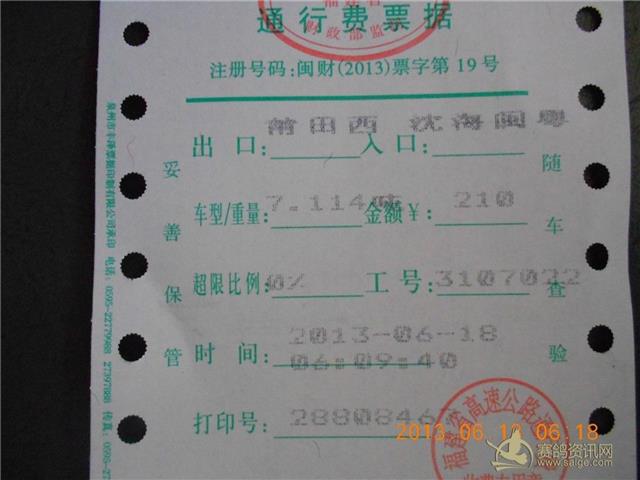 通行费票据
财政部监
注册号码:闽财(2013)票字第19号
出口: 莆田西 入口: 沈海闽粤
车型/重量: 7.114吨 金额¥: 210
超限比例: 0% 工号: 3107022
时间: 2013-06-18
06:09:40
打印号: 2880846
妥善保管
随车查验
泉州市丰泽票据印制有限公司承印 电话: 0595-22779988 27397888 传真: 0595-27
高速公路
2013 06 18 06:18
赛鸽资讯网
www.saige.com